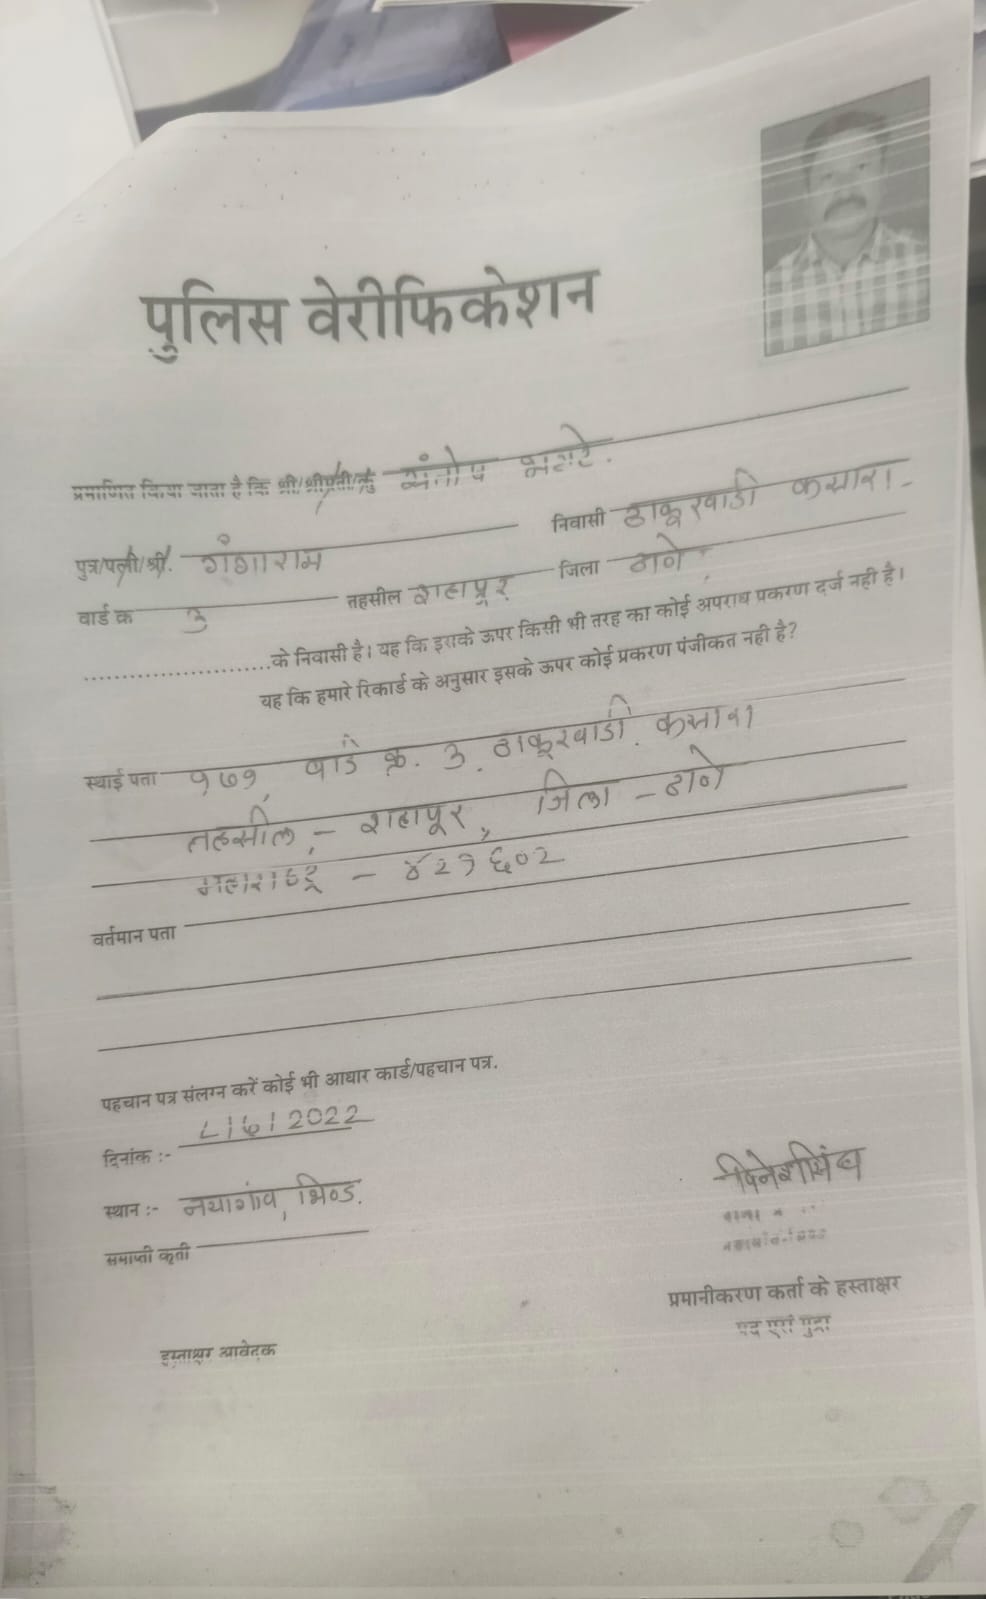 पुलिस वेरीफिकेशन
प्रमाणित किया जाता है कि श्री/श्रीमती/कु संतोष
पुत्र/पत्नी/श्री. गंगाराम निवासी ठाकूरवाडी कसारा.
वार्ड क्र 3 तहसील शहापूर जिला ठाणे
........................के निवासी है। यह कि इसके ऊपर किसी भी तरह का कोई अपराध प्रकरण दर्ज नही है।
यह कि हमारे रिकार्ड के अनुसार इसके ऊपर कोई प्रकरण पंजीकत नही है?
स्थाई पता १७१, वार्ड क्र. 3, ठाकूरवाडी, कसारा
तहसील - शहापूर, जिला - ठाणे
महाराष्ट्र - ४२१६०२
वर्तमान पता
पहचान पत्र संलग्न करें कोई भी आधार कार्ड/पहचान पत्र.
दिनांक :- 2022
स्थान :- नयागांव, भिण्ड.
समाप्ती कृती
प्रमानीकरण कर्ता के हस्ताक्षर
पद एवं मुद्रा
हस्ताक्षर आवेदक